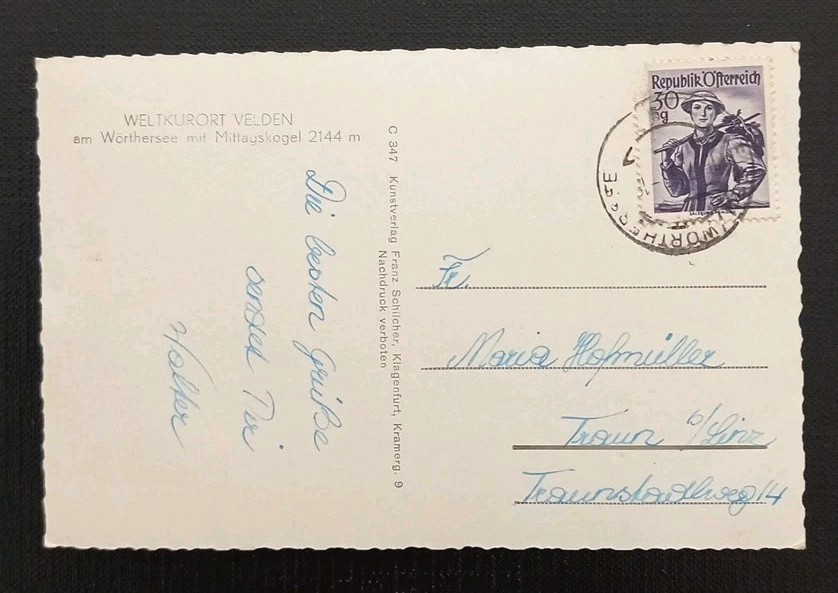 WELTKURORT VELDEN
am Wörthersee mit Mittagskogel 2144 m
Die besten Grüße
sendet Dir
Walter
C 347 Kunstverlag Franz Schilcher, Klagenfurt, Kramerg. 9
Nachdruck verboten
Republik Österreich
30
g
WÖRTHERSEE
Fr.
Maria Hofmüller
Traun b/Linz
14